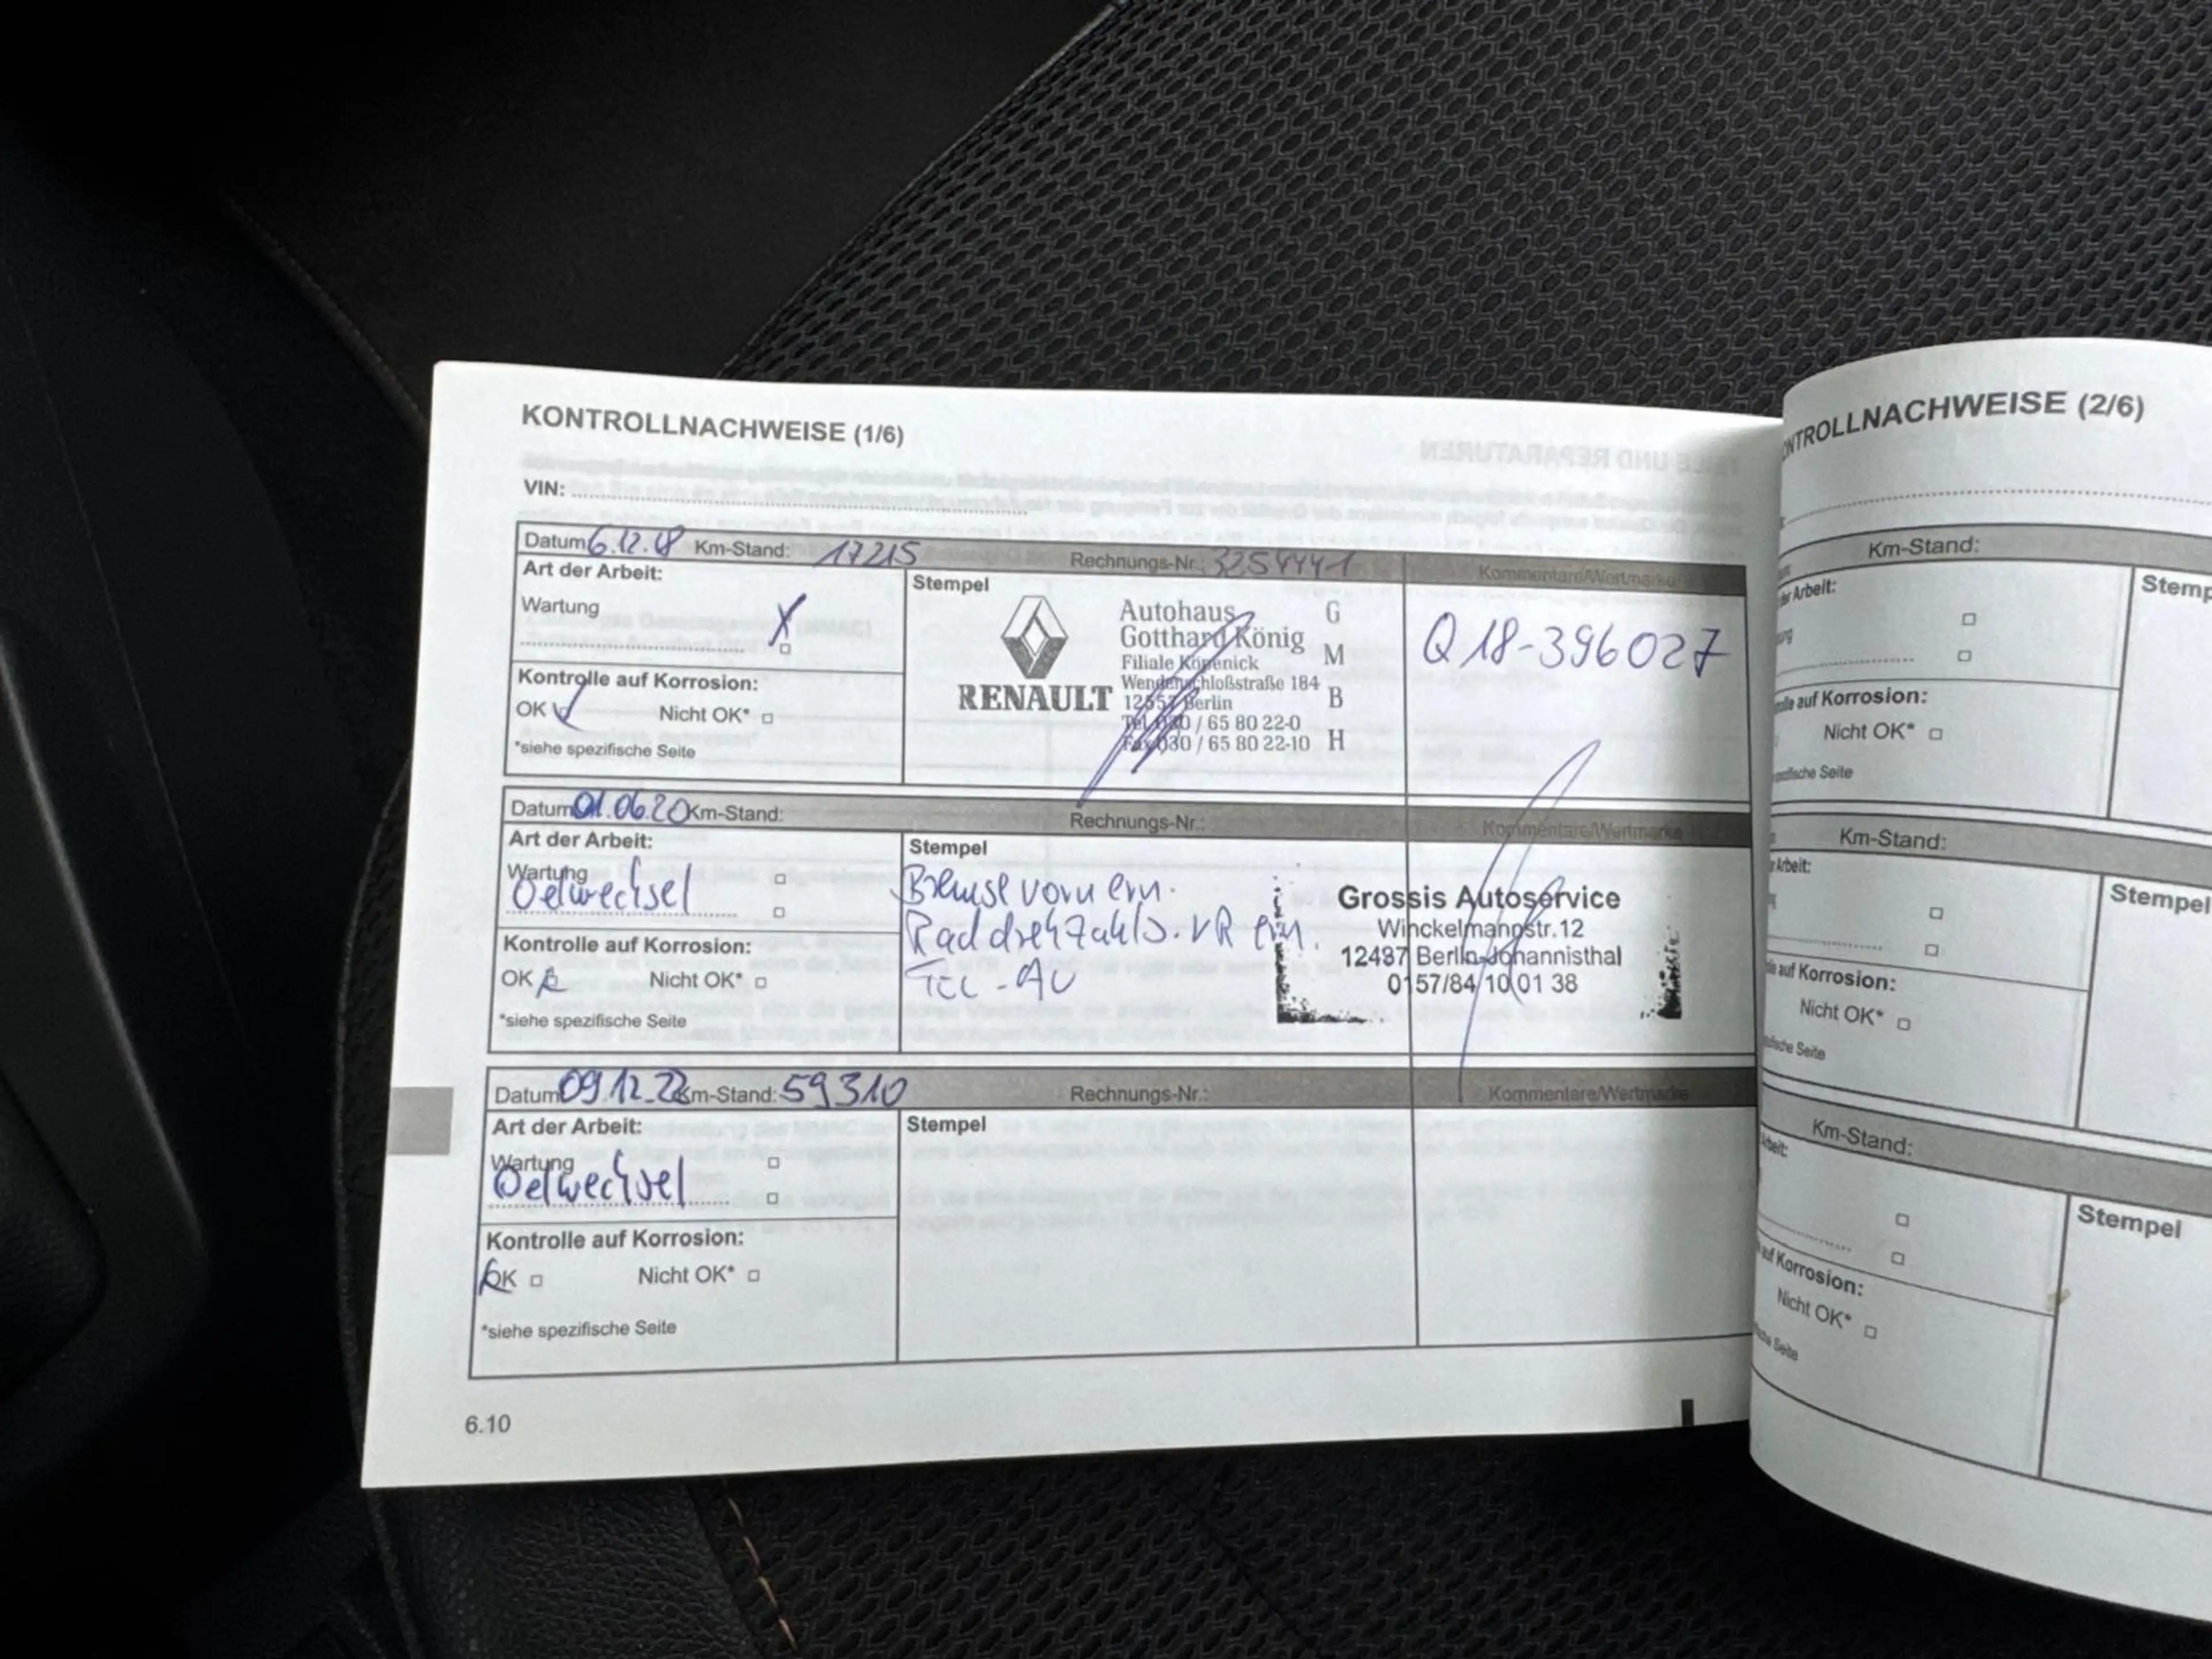 KONTROLLNACHWEISE (1/6)
VIN:
Datum 6.12.18 Km-Stand: 17215 Rechnungs-Nr.: 3254441 Kommentare/Wertmarke
Art der Arbeit:
Wartung X
Kontrolle auf Korrosion:
OK Nicht OK*
*siehe spezifische Seite
Stempel
RENAULT
Autohaus G
Gotthard König
Filiale Köpenick M
Wendenschloßstraße 184
12557 Berlin B
Tel. 030 / 65 80 22-0
Fax 030 / 65 80 22-10 H
Q18-396027
Datum 01.06.20 Km-Stand: Rechnungs-Nr.: Kommentare/Wertmarke
Art der Arbeit:
Wartung
Oelwechsel
Kontrolle auf Korrosion:
OK Nicht OK*
*siehe spezifische Seite
Stempel
Bremse vorn ern.
Raddrehzahls. VR ern.
AU
Grossis Autoservice
Winckelmannstr. 12
12487 Berlin-Johannisthal
0157/84 10 01 38
Datum 09.12.22 Km-Stand: 59310 Rechnungs-Nr.: Kommentare/Wertmarke
Art der Arbeit:
Wartung
Oelwechsel
Kontrolle auf Korrosion:
OK Nicht OK*
*siehe spezifische Seite
Stempel
6.10
NTROLLNACHWEISE (2/6)
Km-Stand:
Arbeit:
Stemp
auf Korrosion:
Nicht OK*
Seite
Km-Stand:
Arbeit:
Stempel
auf Korrosion:
Nicht OK*
Seite
Km-Stand:
Stempel
auf Korrosion:
Nicht OK*
Seite